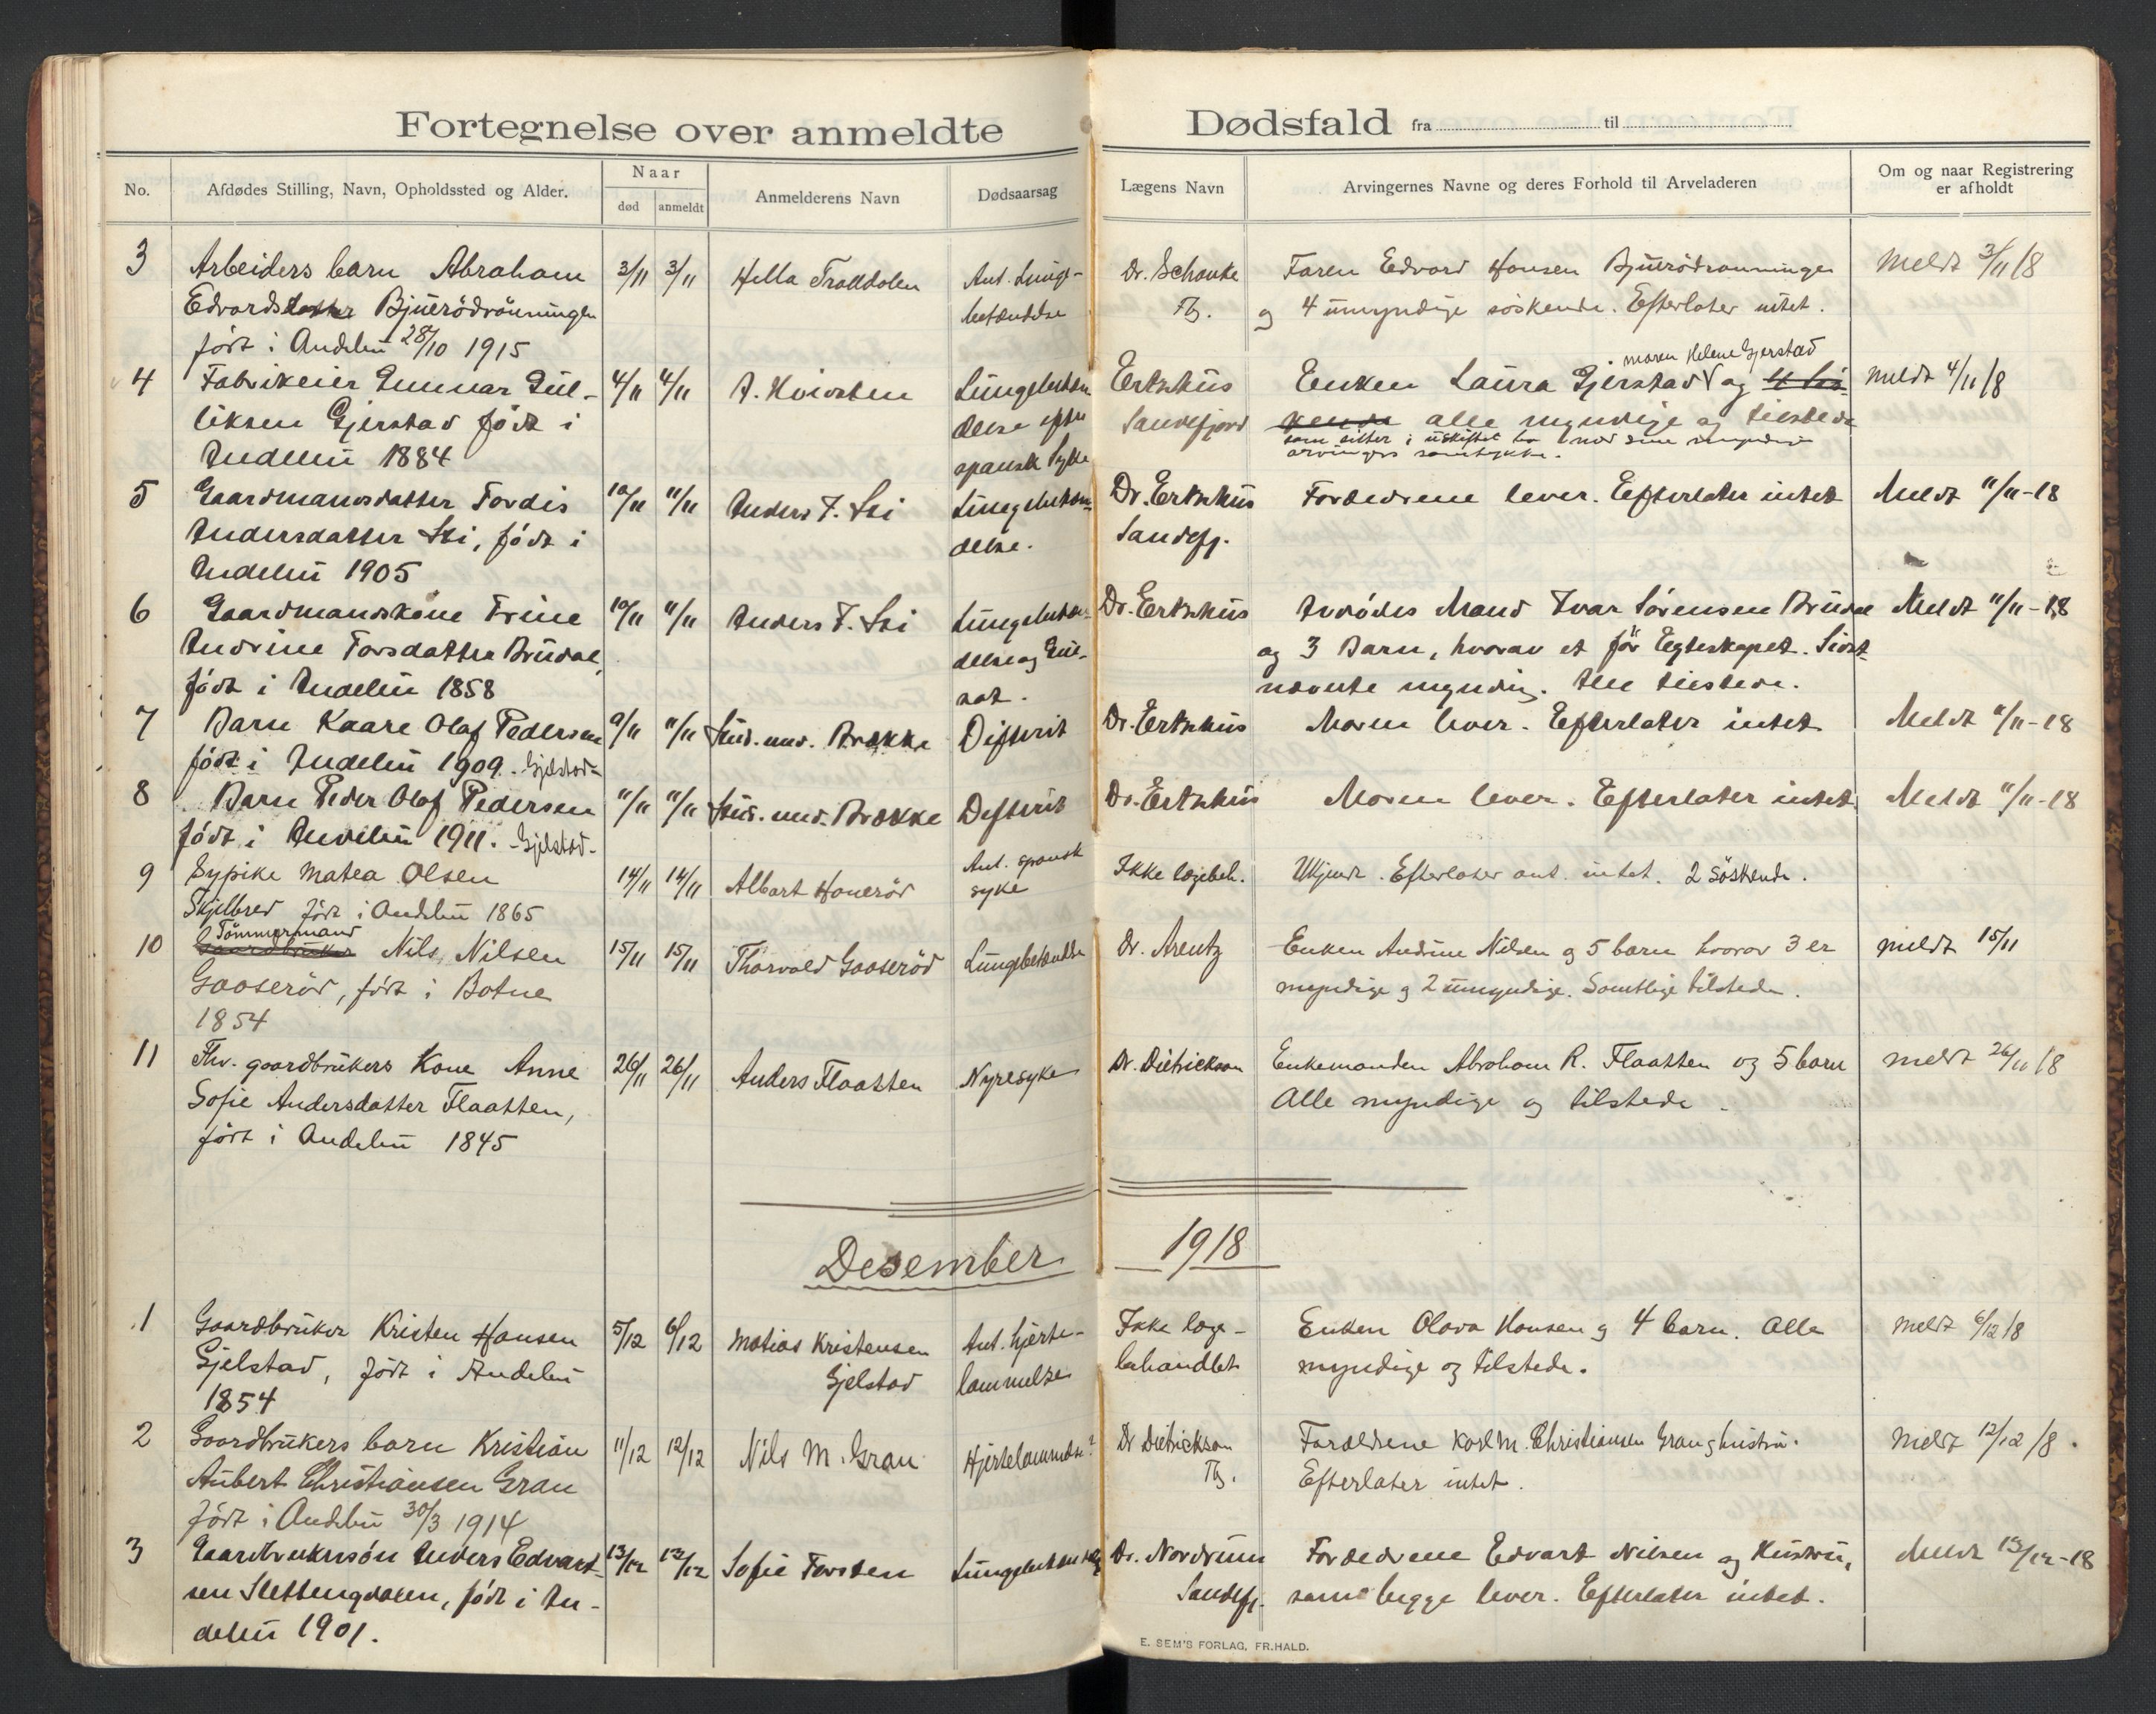 Fortegnelse over anmeldte Dødsfald fra til
No. Afdødes Stilling, Navn, Opholdssted og Alder. Naar død anmeldt Anmelderens Navn Dødsaarsag Lægens Navn Arvingernes Navne og deres Forhold til Arveladeren Om og naar Registrering er afholdt
3 Arbeiders barn Abraham 3/11 3/11 Hella Trolldalen Ant. Lunge- Dr. Schanke Faren Edvard Hansen Bjuerödrønningen Meldt 3/11 18
Edvards Bjuerödrönningen betændelse Tbg. og 4 umyndige söskende. Efterlater intet.
födt i Andebu 28/10 1915
4 Fabrikeier Gunnar Gul- 4/11 4/11 Lungebetæn- Ertzhus Enken Laura Gjerstad V og moren Helene Gjerstad meldt 4/11 18
liksen Gjerstad födt i delse efter Sandefjord alle myndige og tilstede
Andebu 1884 spansk Syke som sitter i uskiftet bo med sine myndige
arvingers samtykke.
5 Gaardmandsdatter Tordis 10/11 11/11 Anders F. Ski Lungebetæn- Dr. Ertzhus Forældrene lever. Efterlater intet Meldt 11/11-18
Andersdatter Ski, födt i delse. Sandefj.
Andebu 1905
6 Gaardmandskone Trine 10/11 11/11 Anders F. Ski Lungebetæn- Dr. Ertzhus Avdödes Mand Ivar Sörensen Brudal Meldt 11/11-18
Andrine Torsdatter Brudal, delse og Gul- og 3 Barn, hvorav et för Egteskapet. Sidst-
födt i Andebu 1858 sot. nævnte myndig. Alle tilstede.
7 Barn Kaare Olaf Pedersen 9/11 11/11 Brække Difterit Dr. Ertzhus Moren lever. Efterlater intet Meldt 11/11-18
födt i Andebu 1909. Gjelstad-
8 Barn Peder Olaf Pedersen 11/11 11/11 Brække Difterit Dr. Ertzhus Moren lever. Efterlater intet Meldt 11/11-18
födt i Andebu 1911. -Gjelstad-
9 Sypike Matea Olsen 14/11 14/11 Albart Honerød Ant. spansk syke Ikke lægebeh. Ukjendt. Efterlater ant. intet. 2 Söskende.
Skjelbred födt i Andebu 1865
Tömmermand
10 Gaardbruker Nils Nilsen 15/11 15/11 Thorvald Gaaseröd Lungebetændelse Dr. Arentz Enken Andrine Nilsen og 5 barn hvorav 3 er meldt 15/11
Gaaseröd, födt i Botne myndige og 2 umyndige. Samtlige tilstede.
1854
11 Fhv. gaardbrukers Kone Anne 26/11 26/11 Anders Flaatten Nyresyke Dr. Dietrickson Enkemanden Abraham R. Flaatten og 5 barn meldt 26/11 18
Sofie Andersdatter Flaatten, Alle myndige og tilstede.
födt i Andebu 1845
Desember 1918
1 Gaardbruker Kristen Hansen 5/12 6/12 Matias Kristensen Ant. hjerte- Ikke læge- Enken Olava Hansen og 4 barn. Alle meldt 6/12 18
Gjelstad, födt i Andebu Gjelstad lammelse behandlet myndige og tilstede.
1854
2 Gaardbrukers barn Kristian 11/12 12/12 Nils M. Gran Hjertelammelse? Dr Dietrickson Forældrene Karl M. Christiansen Gran og hustru. Meldt 12/12 18.
Aubert Christiansen Gran Tbg. Efterlater intet.
födt i Andebu 30/3 1914
3 Gaardbrukersön Anders Edvard- 13/12 13/12 Sofie Torsten Lungebetændelse Dr. Nordrum Forældrene Edvart Nilsen og Hustru, Meldt 13/12-18
sen Slettingdalen, födt i An- Sandefj. som begge lever. Efterlater intet.
debu 1901.
E. SEM'S FORLAG, FR.HALD.